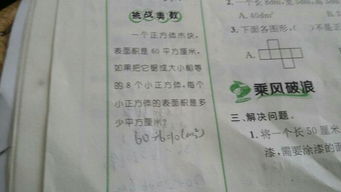 挑战奥数
一个正方体木块,
表面积是 60 平方厘米,
如果把它锯成大小相等
的 8 个小正方体,每个
小正方体的表面积是多
少平方厘米?
60÷6=10(cm²)
2. 一个长 8dm,宽 5dm,高
A. 40dm²
3. 下面各图形,( )不是正
A.
乘风破浪
三、解决问题。
1. 将一个长 50 厘米
漆,需要涂漆的面